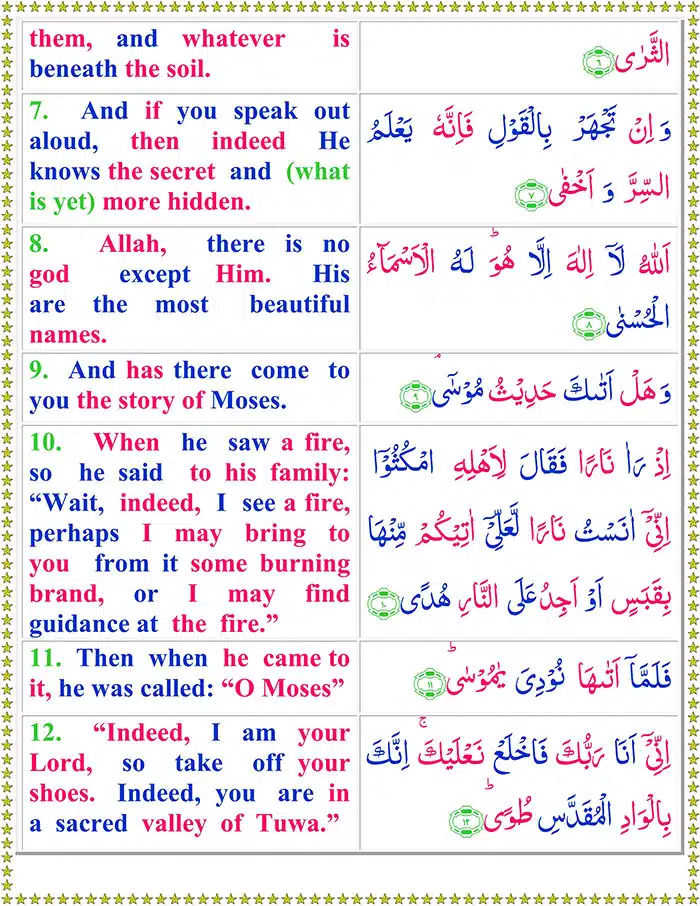 them, and whatever is
beneath the soil.
الثَّرٰى ۶
7. And if you speak out
aloud, then indeed He
knows the secret and (what
is yet) more hidden.
وَ اِنْ تَجْهَرْ بِالْقَوْلِ فَاِنَّهٗ يَعْلَمُ
السِّرَّ وَ اَخْفٰى ۷
8. Allah, there is no
god except Him. His
are the most beautiful
names.
اَللّٰهُ لَاۤ اِلٰهَ اِلَّا هُوَؕ لَهُ الْاَسْمَآءُ
الْحُسْنٰى ۸
9. And has there come to
you the story of Moses.
وَ هَلْ اَتٰىكَ حَدِيْثُ مُوْسٰىۘ ۹
10. When he saw a fire,
so he said to his family:
“Wait, indeed, I see a fire,
perhaps I may bring to
you from it some burning
brand, or I may find
guidance at the fire.”
اِذْ رَاٰ نَارًا فَقَالَ لِاَهْلِهِ امْكُثُوْۤا
اِنِّيْۤ اٰنَسْتُ نَارًا لَّعَلِّيْۤ اٰتِيْكُمْ مِّنْهَا
بِقَبَسٍ اَوْ اَجِدُ عَلَى النَّارِ هُدًى ۱۰
11. Then when he came to
it, he was called: “O Moses”
فَلَمَّاۤ اَتٰىهَا نُوْدِيَ يٰمُوْسٰىؕ ۱۱
12. “Indeed, I am your
Lord, so take off your
shoes. Indeed, you are in
a sacred valley of Tuwa.”
اِنِّيْۤ اَنَا رَبُّكَ فَاخْلَعْ نَعْلَيْكَۚ اِنَّكَ
بِالْوَادِ الْمُقَدَّسِ طُوًىؕ ۱۲